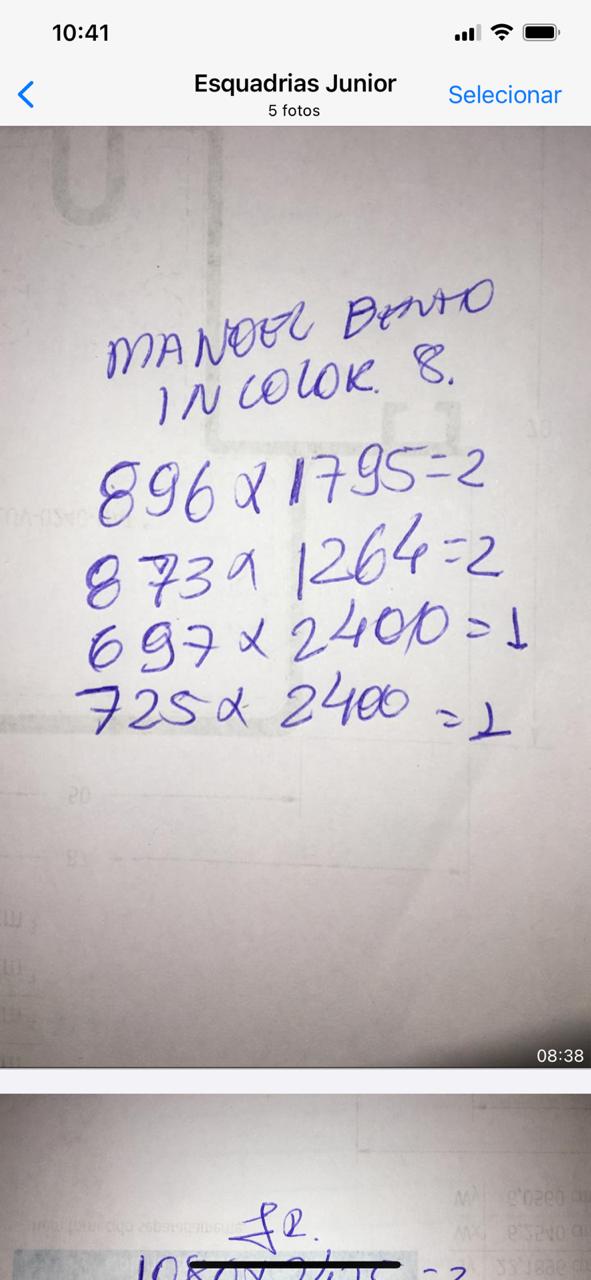 10:41
Esquadrias Junior
5 fotos
Selecionar
MANOEL BENTO
INCOLOR. 8.
896 x 1795 = 2
873 x 1264 = 2
697 x 2400 = 1
725 x 2400 = 1
08:38